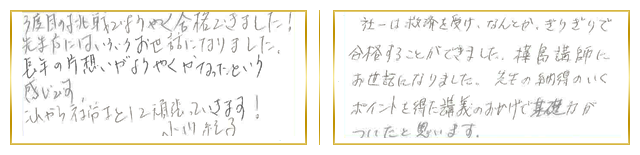 3度目の挑戦でようやく合格できました!
先生方にはいろいろお世話になりました。
長年の片想いがようやくかなったという
感じです
これから社労士として頑張っていきます!
小川
社一は救済を受け、なんとか、ぎりぎりで
合格することができました。椛島講師に
お世話になりました。先生の納得のいく
ポイントを得た講義のおかげで基礎力が
ついたと思います。